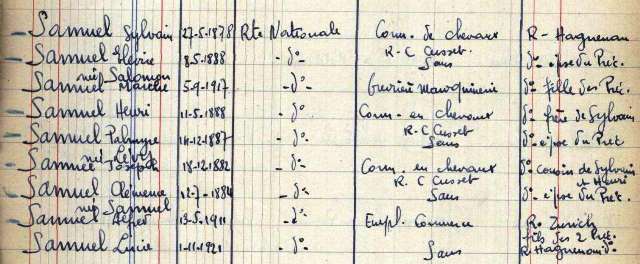 Samuel Sylvain 27-5-1878 Rte Nationale Com. de chevaux R- Haguenau
R-C Cusset
Samuel 8-5-1888 - d° - Sans d° épse du Préc.
née Salomon
Samuel 5-9-1917 - d° - Ouvrière Maroquinerie d° fille des Préc.
Samuel Henri 11-5-1888 - d° Com. en chevaux d° frère de Sylvain
R-C Cusset
Samuel Palmyre 14-12-1887 - d° - Sans d° épse du Préc
née Lévy
Samuel Joseph 18-12-1882 - d° - Com. en chevaux d° cousin de Sylvain
R. C Cusset et Henri
Samuel Clémence -1884 - d° - Sans d° épse du Préc.
née Samuel
Samuel Alfred -5-1911 - d° - Empl. Commerce R. Zurich
fils des 2 Préc.
Samuel Lucie 1-11-1921 - d° Sans R. Haguenau d°